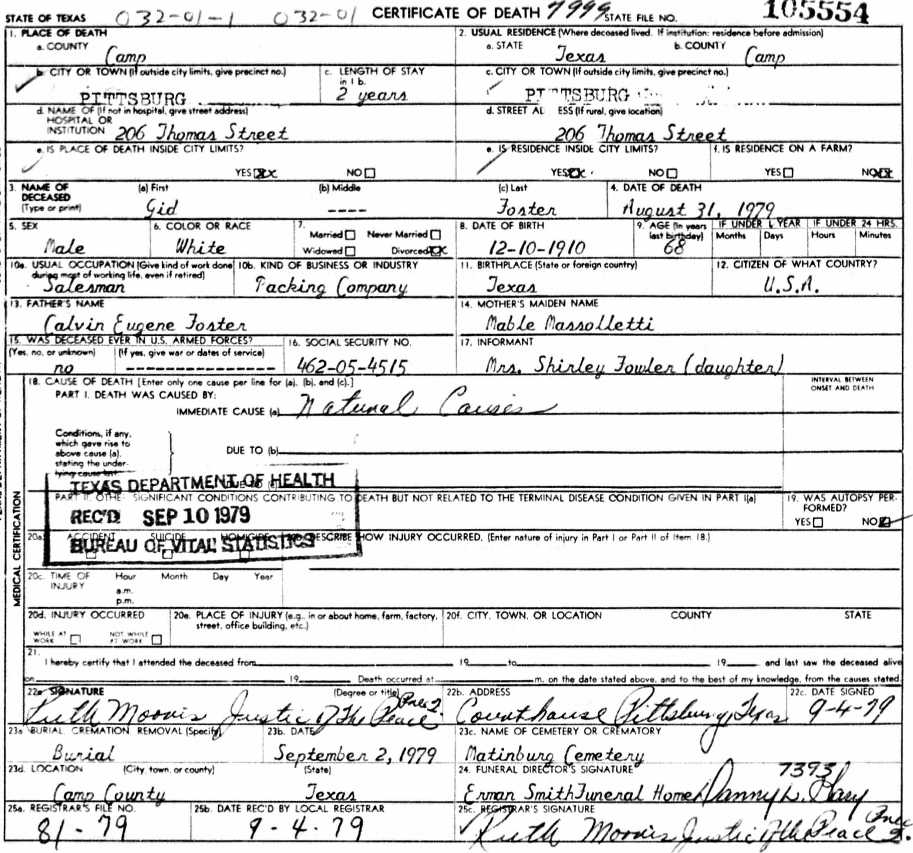 STATE OF TEXAS 032-01-1 032-01 CERTIFICATE OF DEATH 7999 STATE FILE NO. 105554
1. PLACE OF DEATH 2. USUAL RESIDENCE (Where deceased lived. If institution: residence before admission)
a. COUNTY a. STATE b. COUNTY
Camp Texas Camp
b. CITY OR TOWN (If outside city limits, give precinct no.) c. LENGTH OF STAY in 1 b. c. CITY OR TOWN (If outside city limits, give precinct no.)
PITTSBURG 2 years PITTSBURG
d. NAME OF (If not in hospital, give street address) d. STREET AL ESS (If rural, give location)
HOSPITAL OR
INSTITUTION 206 Thomas Street 206 Thomas Street
e. IS PLACE OF DEATH INSIDE CITY LIMITS? e. IS RESIDENCE INSIDE CITY LIMITS? f. IS RESIDENCE ON A FARM?
YES XX NO YES XX NO YES NO XX
3. NAME OF DECEASED (a) First (b) Middle (c) Last 4. DATE OF DEATH
(Type or print) Gid ---- Foster August 31, 1979
5. SEX 6. COLOR OR RACE 7. Married Never Married 8. DATE OF BIRTH 9. AGE (In years last birthday) IF UNDER 1 YEAR IF UNDER 24 HRS.
Months Days Hours Minutes
Male White Widowed Divorced XX 12-10-1910 68
10a. USUAL OCCUPATION (Give kind of work done during most of working life, even if retired) 10b. KIND OF BUSINESS OR INDUSTRY 11. BIRTHPLACE (State or foreign country) 12. CITIZEN OF WHAT COUNTRY?
Salesman Packing Company Texas U.S.A.
13. FATHER'S NAME 14. MOTHER'S MAIDEN NAME
Calvin Eugene Foster Mable Massolletti
15. WAS DECEASED EVER IN U.S. ARMED FORCES? 16. SOCIAL SECURITY NO. 17. INFORMANT
(Yes, no, or unknown) (If yes, give war or dates of service)
no --------------- 462-05-4515 Mrs. Shirley Fowler (daughter)
18. CAUSE OF DEATH [Enter only one cause per line for (a), (b), and (c).] INTERVAL BETWEEN ONSET AND DEATH
PART I. DEATH WAS CAUSED BY:
IMMEDIATE CAUSE (a) Natural Causes
Conditions, if any,
which gave rise to
above cause (a), DUE TO (b)
stating the under-
lying cause last
TEXAS DEPARTMENT OF HEALTH
REC'D SEP 10 1979
BUREAU OF VITAL STATISTICS
PART II. OTHE SIGNIFICANT CONDITIONS CONTRIBUTING TO DEATH BUT NOT RELATED TO THE TERMINAL DISEASE CONDITION GIVEN IN PART I(a) 19. WAS AUTOPSY PERFORMED?
YES NO
20a. ACCIDENT SUICIDE HOMICIDE DESCRIBE HOW INJURY OCCURRED. (Enter nature of injury in Part I or Part II of Item 18.)
20c. TIME OF INJURY Hour Month Day Year
a.m.
p.m.
MEDICAL CERTIFICATION
20d. INJURY OCCURRED 20e. PLACE OF INJURY (e.g., in or about home, farm, factory, street, office building, etc.) 20f. CITY, TOWN, OR LOCATION COUNTY STATE
WHILE AT WORK NOT WHILE AT WORK
21.
I hereby certify that I attended the deceased from 19 to 19 and last saw the deceased alive
on 19 Death occurred at m. on the date stated above, and to the best of my knowledge, from the causes stated
22a. SIGNATURE (Degree or title) 22b. ADDRESS 22c. DATE SIGNED
Ruth Morris Justic Of The Peace Prec 2 Courthouse Pittsburg, Texas 9-4-79
23a. BURIAL, CREMATION REMOVAL (Specify) 23b. DATE 23c. NAME OF CEMETERY OR CREMATORY
Burial September 2, 1979 Matinburg Cemetery
23d. LOCATION (City town, or county) (State) 24. FUNERAL DIRECTOR'S SIGNATURE 7393
Camp County Texas Erman Smith Funeral Home Danny L.
25a. REGISTRAR'S FILE NO. 25b. DATE REC'D BY LOCAL REGISTRAR 25c. REGISTRAR'S SIGNATURE
81-79 9-4-79 Ruth Morris Justic Of the Peace Prec 2.